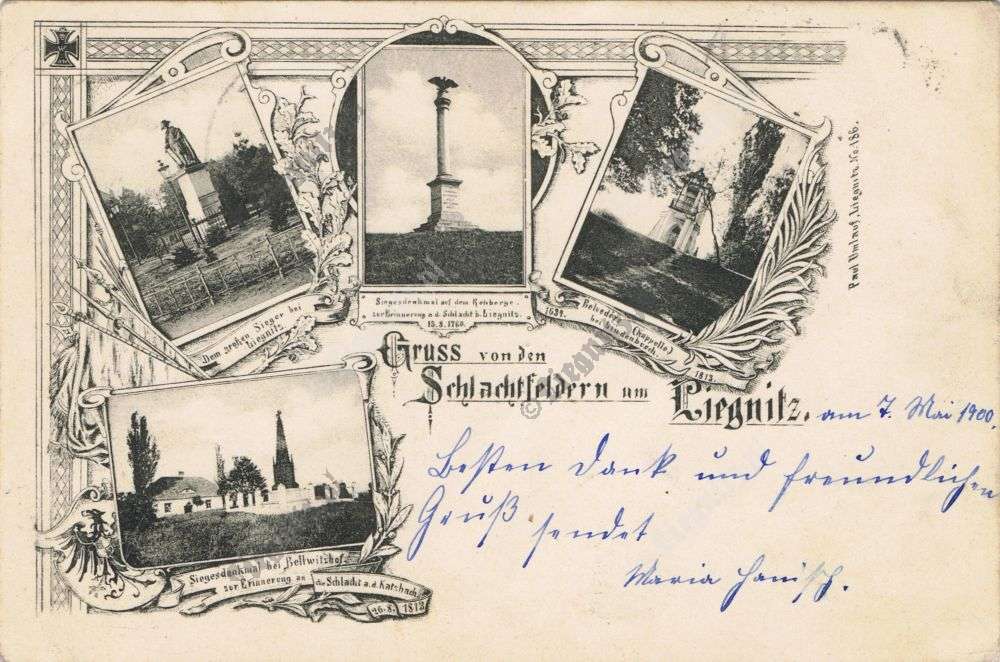 Dem großen Sieger bei
Liegnitz
Siegesdenkmal auf dem Rehberge
zur Erinnerung a.d. Schlacht b. Liegnitz.
15.8.1760.
1634. Belvedere (Chappelle)
bei Lindenbusch 1813
Paul Umlauf, Liegnitz. No. 186.
Gruss von den
Schlachtfeldern um Liegnitz.
am 7. Mai 1900.
Besten Dank und freundlichen
Gruß sendet
Maria Hanisch.
Siegesdenkmal bei Bellwitzhof
zur Erinnerung an die Schlacht a.d. Katzbach
26.8. 1813